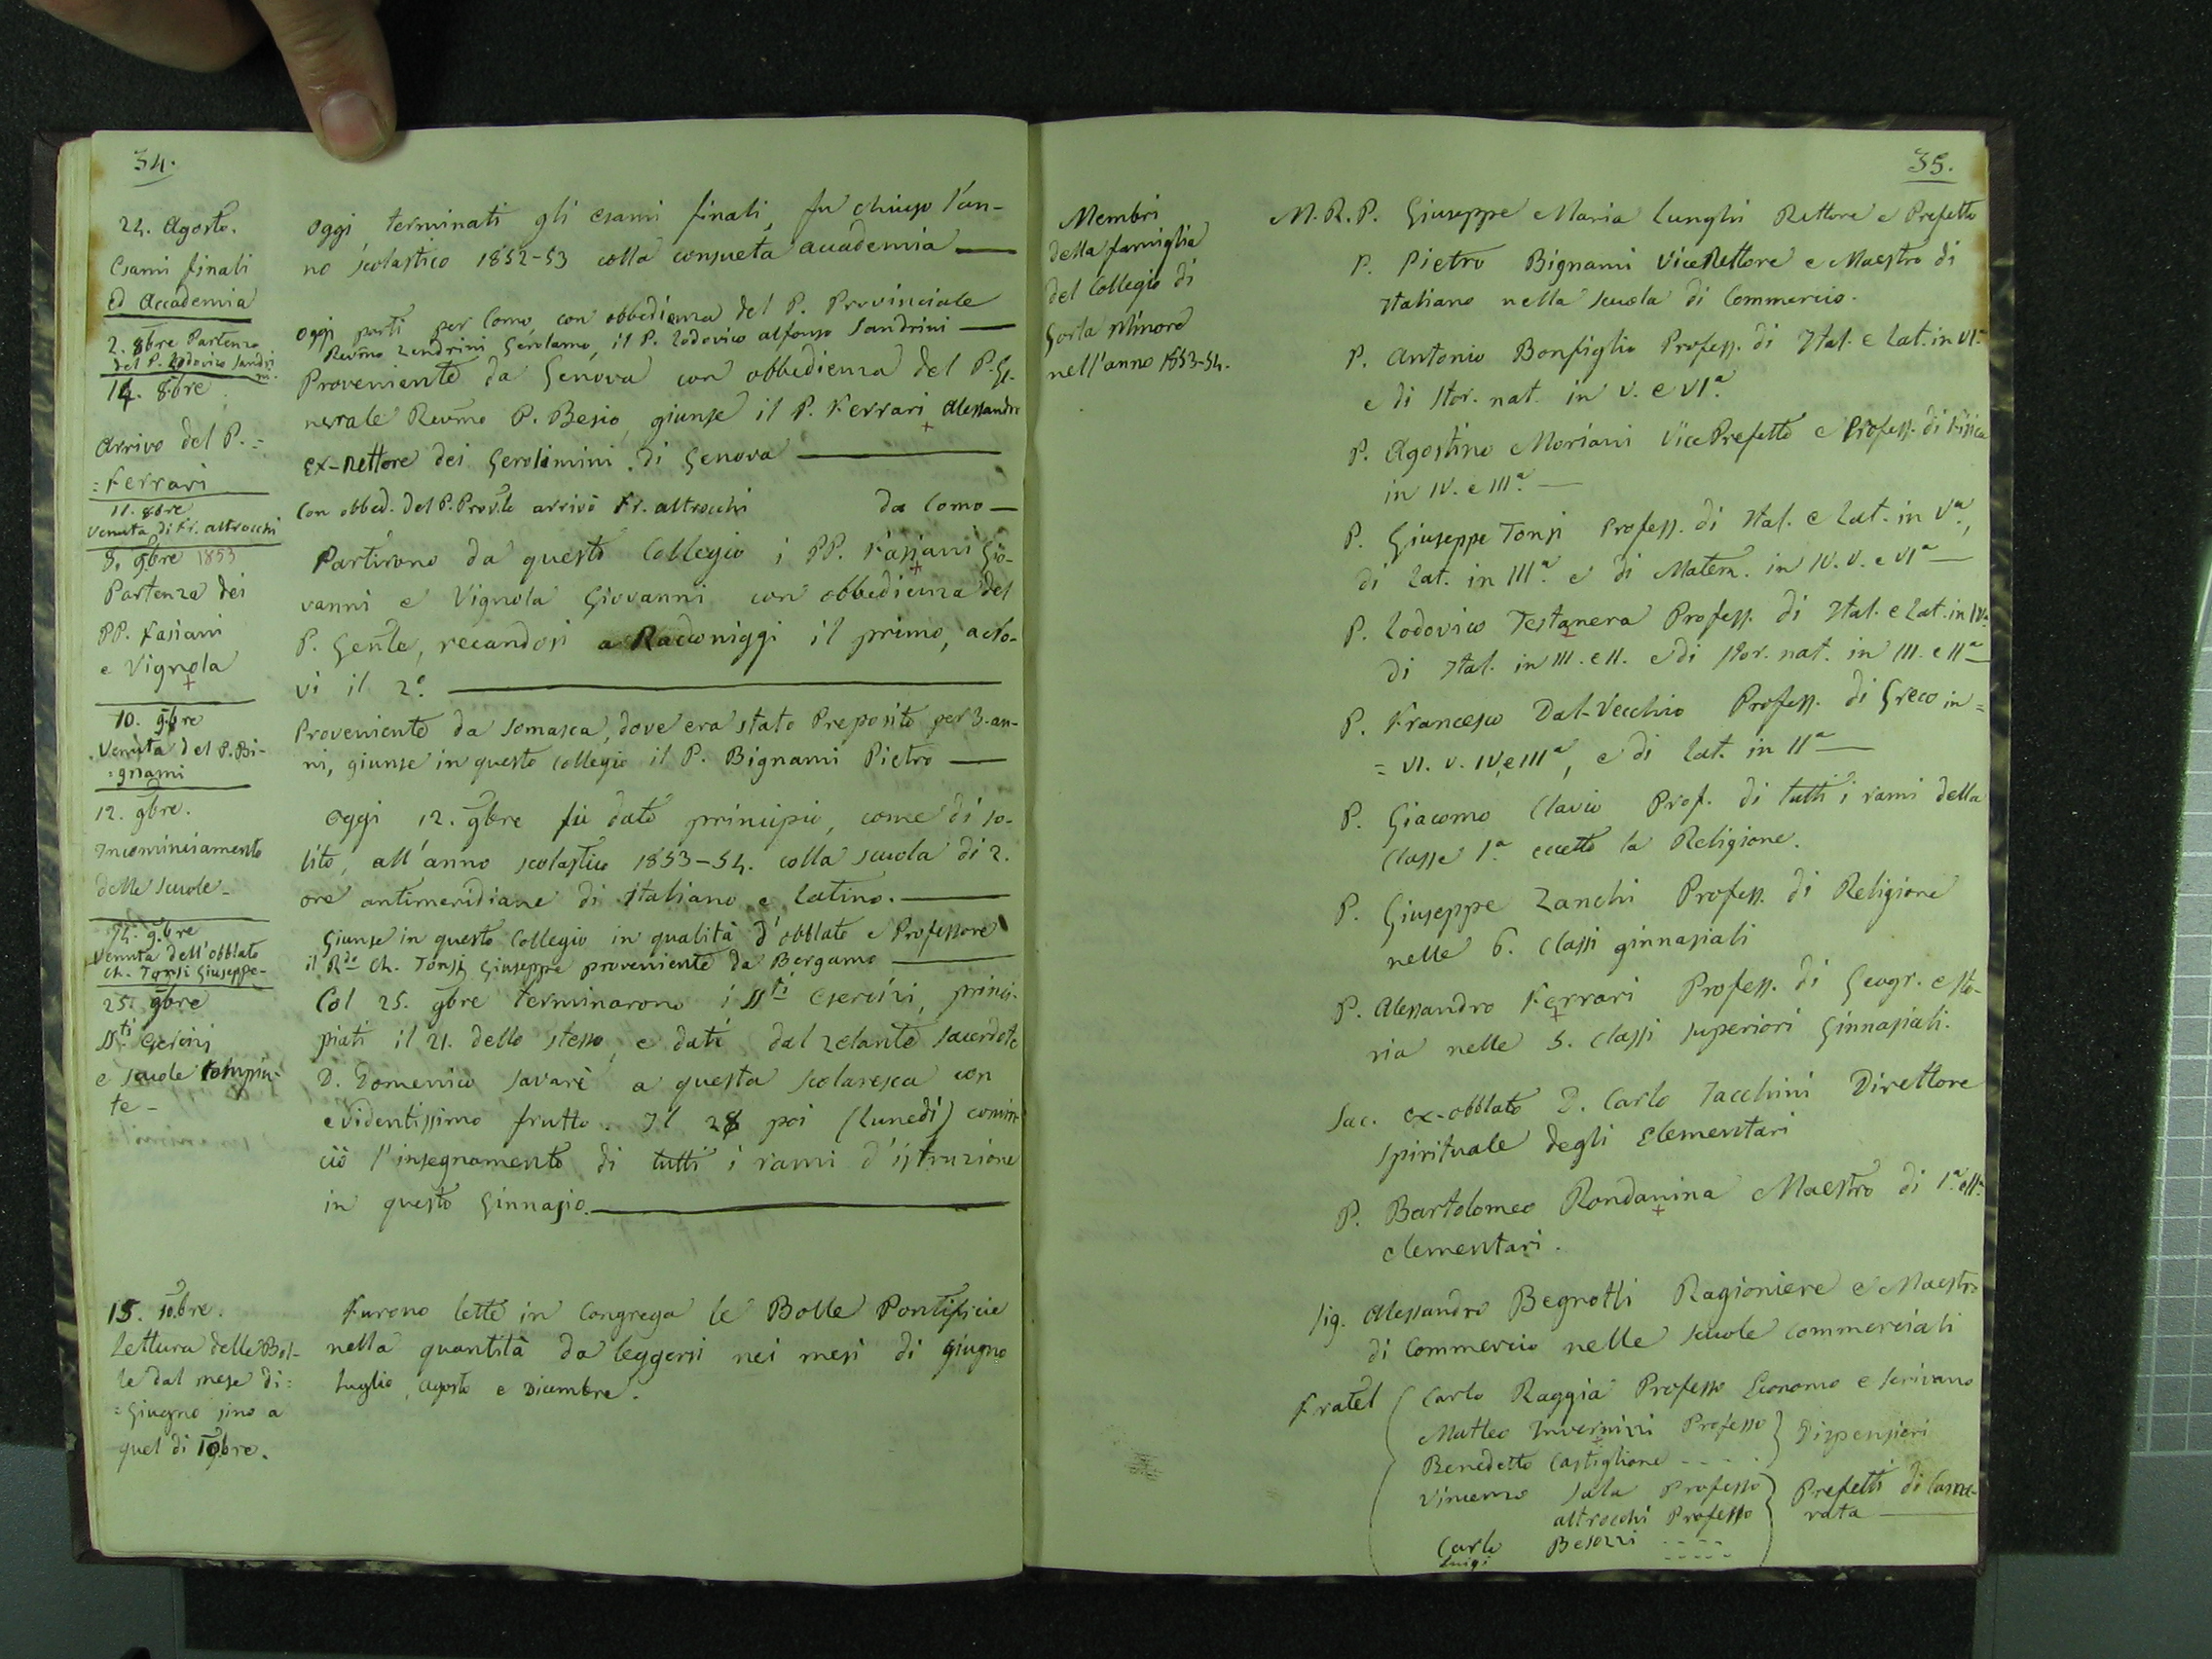 34.
24. Agosto.
Esami finali
ed Accademia
Oggi terminati gli esami finali, fu chiuso l'an-
no scolastico 1852-53 colla consueta accademia
2. 8bre Partenza
del P. Lodovico Sandri
ni.
Oggi partì per Como, con obbedienza del P. Provinciale
Revmo Zendrini Gerolamo, il P. Lodovico Alfonso Sandrini
14. 8bre
Arrivo del P. =
= Ferrari
Proveniente da Genova con obbedienza del P. Ge-
nerale Revmo P. Besio, giunse il P. Ferrari Alessandro
ex-Rettore dei Gerolimini di Genova
11. 8bre
Venuta di Fr. Altrocchi
Con obbed. del P. Prov.le arrivò Fr. Altrocchi da Como
8. 9bre 1853
Partenza dei
PP. Fasiani
e Vignola
Partirono da questo Collegio i PP. Fasiani Gio-
vanni e Vignola Giovanni con obbedienza del
P. Gen.le, recandosi a Racconiggi il primo, a No-
vi il 2.o
10. 9bre
Venuta del P. Bi-
= gnami
Proveniente da Somasca, dove era stato Preposito per 3. an-
ni, giunse in questo Collegio il P. Bignami Pietro
12. 9bre.
Incominciamento
delle scuole -
Oggi 12. 9bre fù dato principio, come di so-
lito, all'anno scolastico 1853-54. colla scuola di 2.
ore antimeridiane di Italiano e Latino.
14. 9bre
Venuta dell'obblato
Ch. Tonsi Giuseppe -
Giunse in questo Collegio in qualità d'obblato e Professore
il Rdo Ch. Tonsi Giuseppe proveniente da Bergamo
25. 9bre
SSti Esercizj
e scuole compiu-
te -
Col 25. 9bre terminarono i SSti Esercizi, princi-
piati il 21. dello stesso, e dati dal zelante Sacerdote
D. Domenico Savarè a questa scolaresca con
evidentissimo frutto. Il 28 poi (lunedì) comin-
ciò l'insegnamento di tutti i rami d'istruzione
in questo Ginnasio.
15. 10bre.
Lettura delle Bol-
le dal mese di =
= Giugno sino a
quel di 10bre.
Furono lette in Congrega le Bolle Pontificie
nella quantità da leggersi nei mesi di Giugno
Luglio, Agosto e Dicembre.
35.
Membri
della famiglia
del Collegio di
Gorla Minore
nell'anno 1853-54.
M. R. P. Giuseppe Maria Lunghi Rettore e Prefetto
P. Pietro Bignami ViceRettore e Maestro di
Italiano nella scuola di Commercio.
P. Antonio Bonfiglio Profess. di Ital. e Lat. in VI.a
e di Stor. nat. in V. e VI.a
P. Agostino Moriani VicePrefetto e Profess. di Fisica
in IV. e III.a
P. Giuseppe Tonsi Profess. di Ital. e Lat. in V.a,
di Lat. in III.a e di Matem. in IV. V. e VI.a
P. Lodovico Testanera Profess. di Ital. e Lat. in IV.a
di Ital. in III. e II. e di Stor. nat. in III. e II.a
P. Francesco Dal-Vecchio Profess. di Greco in =
= VI. V. IV. e III.a, e di Lat. in II.a
P. Giacomo Clavio Prof. di tutti i rami della
Classe 1.a eccetto la Religione.
P. Giuseppe Zanchi Profess. di Religione
nelle 6. classi ginnasiali
P. Alessandro Ferrari Profess. di Geogr. e Sto-
ria nelle 5. classi superiori Ginnasiali.
Sac. ex-obblato D. Carlo Tacchini Direttore
Spirituale degli Elementari
P. Bartolomeo Rondanina Maestro di 1.a e II.a
elementari.
Sig. Alessandro Begnotti Ragioniere e Maestro
di Commercio nelle scuole commerciali
Fratel
Carlo Raggia Professo Economo e Scrivano
Matteo Invernizzi Professo
Benedetto Castiglione - - - . Dispensieri
Vincenzo Sala Professo
Altrocchi Professo
Prefetti di Came-
rata
Carlo Besozzi - - - -
Luigi - - - - -